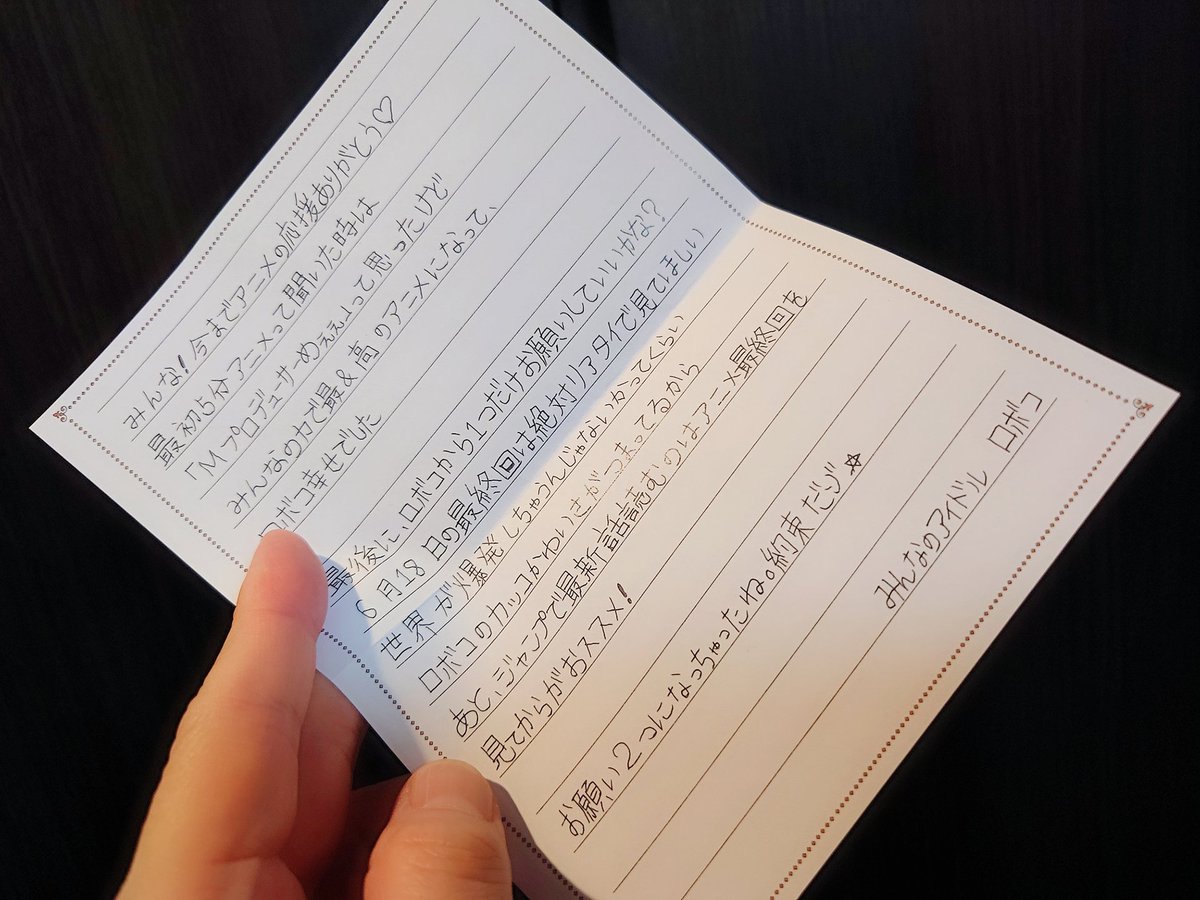 みんな!今までアニメの応援ありがとう♡
最初5分アニメって聞いた時は
「Mプロデューサーめぇぇ」って思ったけど
みんなの力で最&高のアニメになって、
ロボコ幸せでした
最後に、ロボコから1つだけお願いしていいかな?
6月18日の最終回は絶対リアタイで見てほしい
世界が爆発しちゃうんじゃないかってくらい
ロボコのカッコかわいさがつまってるから
あと、ジャンプで最新話読むのはアニメ最終回を
見てからがおススメ!
お願い2つになっちゃったね。約束だゾ☆
みんなのアイドル ロボコ